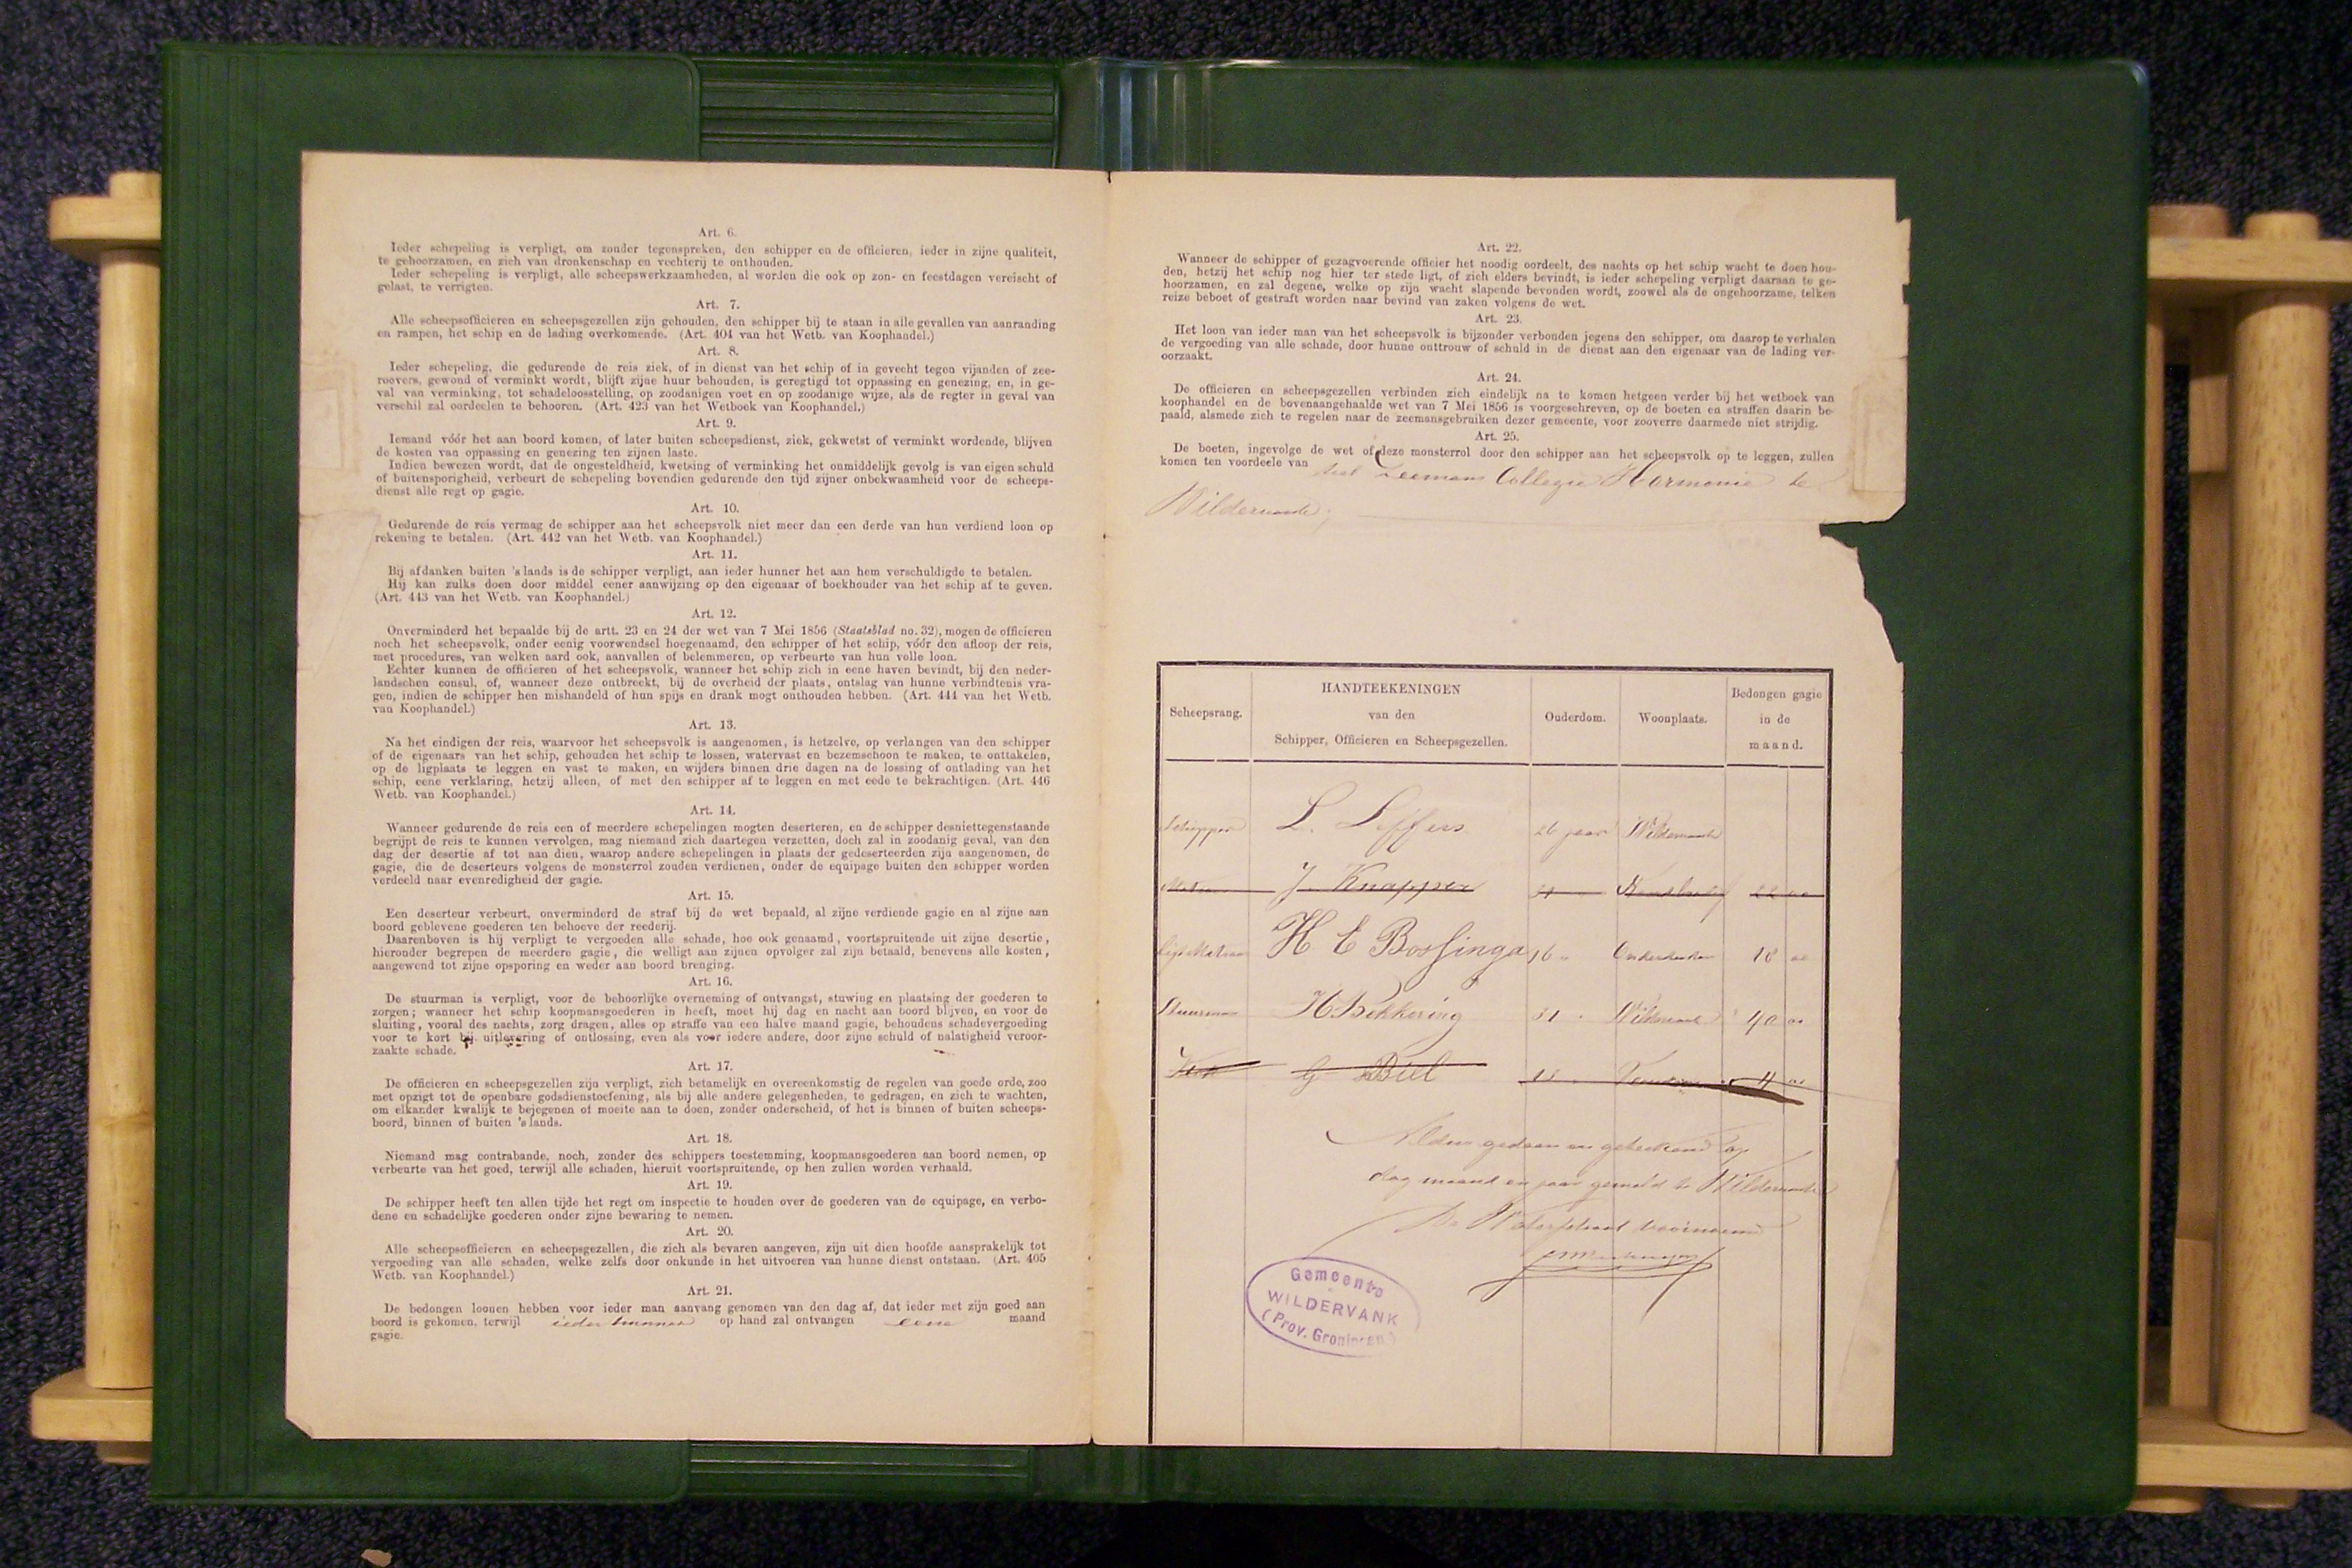 Art. 6.
Ieder schepeling is verpligt, om zonder tegenspreken, den schipper en de officieren, ieder in zijne qualiteit,
te gehoorzamen, en zich van dronkenschap en vechterij te onthouden.
Ieder schepeling is verpligt, alle scheepswerkzaamheden, al worden die ook op zon- en feestdagen vereischt of
gelast, te verrigten.
Art. 7.
Alle scheepsofficieren en scheepsgezellen zijn gehouden, den schipper bij te staan in alle gevallen van aanranding
en rampen, het schip en de lading overkomende. (Art. 404 van het Wetb. van Koophandel.)
Art. 8.
Ieder schepeling, die gedurende de reis ziek, of in dienst van het schip of in gevecht tegen vijanden of zee-
roovers, gewond of verminkt wordt, blijft zijne huur behouden, is geregtigd tot oppassing en genezing, en, in ge-
val van verminking, tot schadeloosstelling, op zoodanigen voet en op zoodanige wijze, als de regter in geval van
verschil zal oordeelen te behooren. (Art. 423 van het Wetboek van Koophandel.)
Art. 9.
Iemand vóór het aan boord komen, of later buiten scheepsdienst, ziek, gekwetst of verminkt wordende, blijven
de kosten van oppassing en genezing ten zijnen laste.
Indien bewezen wordt, dat de ongesteldheid, kwetsing of verminking het onmiddelijk gevolg is van eigen schuld
of buitensporigheid, verbeurt de schepeling bovendien gedurende den tijd zijner onbekwaamheid voor de scheeps-
dienst alle regt op gagie.
Art. 10.
Gedurende de reis vermag de schipper aan het scheepsvolk niet meer dan een derde van hun verdiend loon op
rekening te betalen. (Art. 442 van het Wetb. van Koophandel.)
Art. 11.
Bij afdanken buiten 's lands is de schipper verpligt, aan ieder hunner het aan hem verschuldigde te betalen.
Hij kan zulks doen door middel eener aanwijzing op den eigenaar of boekhouder van het schip af te geven.
(Art. 443 van het Wetb. van Koophandel.)
Art. 12.
Onverminderd het bepaalde bij de artt. 23 en 24 der wet van 7 Mei 1856 (Staatsblad no. 32), mogen de officieren
noch het scheepsvolk, onder eenig voorwendsel hoegenaamd, den schipper of het schip, vóór den afloop der reis,
met procedures, van welken aard ook, aanvallen of belemmeren, op verbeurte van hun volle loon.
Echter kunnen de officieren of het scheepsvolk, wanneer het schip zich in eene haven bevindt, bij den neder-
landschen consul, of, wanneer deze ontbreekt, bij de overheid der plaats, ontslag van hunne verbindtenis vra-
gen, indien de schipper hen mishandeld of hun spijs en drank mogt onthouden hebben. (Art. 444 van het Wetb.
van Koophandel.)
Art. 13.
Na het eindigen der reis, waarvoor het scheepsvolk is aangenomen, is hetzelve, op verlangen van den schipper
of de eigenaars van het schip, gehouden het schip te lossen, watervast en bezemschoon te maken, te onttakelen,
op de ligplaats te leggen en vast te maken, en wijders binnen drie dagen na de lossing of ontlading van het
schip, eene verklaring, hetzij alleen, of met den schipper af te leggen en met eede te bekrachtigen. (Art. 446
Wetb. van Koophandel.)
Art. 14.
Wanneer gedurende de reis een of meerdere schepelingen mogten deserteren, en de schipper desniettegenstaande
begrijpt de reis te kunnen vervolgen, mag niemand zich daartegen verzetten, doch zal in zoodanig geval, van den
dag der desertie af tot aan dien, waarop andere schepelingen in plaats der gedeserteerden zijn aangenomen, de
gagie, die de deserteurs volgens de monsterrol zouden verdienen, onder de equipage buiten den schipper worden
verdeeld naar evenredigheid der gagie.
Art. 15.
Een deserteur verbeurt, onverminderd de straf bij de wet bepaald, al zijne verdiende gagie en al zijne aan
boord geblevene goederen ten behoeve der reederij.
Daarenboven is hij verpligt te vergoeden alle schade, hoe ook genaamd, voortspruitende uit zijne desertie,
hieronder begrepen de meerdere gagie, die welligt aan zijnen opvolger zal zijn betaald, benevens alle kosten,
aangewend tot zijne opsporing en weder aan boord brenging.
Art. 16.
De stuurman is verpligt, voor de behoorlijke overneming of ontvangst, stuwing en plaatsing der goederen te
zorgen; wanneer het schip koopmansgoederen in heeft, moet hij dag en nacht aan boord blijven, en voor de
sluiting, vooral des nachts, zorg dragen, alles op straffe van een halve maand gagie, behoudens schadevergoeding
voor te kort bij uitlevering of ontlossing, even als voor iedere andere, door zijne schuld of nalatigheid veroor-
zaakte schade.
Art. 17.
De officieren en scheepsgezellen zijn verpligt, zich betamelijk en overeenkomstig de regelen van goede orde, zoo
met opzigt tot de openbare godsdienstoefening, als bij alle andere gelegenheden, te gedragen, en zich te wachten,
om elkander kwalijk te bejegenen of moeite aan te doen, zonder onderscheid, of het is binnen of buiten scheeps-
boord, binnen of buiten 's lands.
Art. 18.
Niemand mag contrabande, noch, zonder des schippers toestemming, koopmansgoederen aan boord nemen, op
verbeurte van het goed, terwijl alle schaden, hieruit voortspruitende, op hen zullen worden verhaald.
Art. 19.
De schipper heeft ten allen tijde het regt om inspectie te houden over de goederen van de equipage, en verbo-
dene en schadelijke goederen onder zijne bewaring te nemen.
Art. 20.
Alle scheepsofficieren en scheepsgezellen, die zich als bevaren aangeven, zijn uit dien hoofde aansprakelijk tot
vergoeding van alle schaden, welke zelfs door onkunde in het uitvoeren van hunne dienst ontstaan. (Art. 405
Wetb. van Koophandel.)
Art. 21.
De bedongen loonen hebben voor ieder man aanvang genomen van den dag af, dat ieder met zijn goed aan
boord is gekomen, terwijl ieder hunner op hand zal ontvangen eene maand
gagie.
Art. 22.
Wanneer de schipper of gezagvoerende officier het noodig oordeelt, des nachts op het schip wacht te doen hou-
den, hetzij het schip nog hier ter stede ligt, of zich elders bevindt, is ieder schepeling verpligt daaraan te ge-
hoorzamen, en zal degene, welke op zijn wacht slapende bevonden wordt, zoowel als de ongehoorzame, telken
reize beboet of gestraft worden naar bevind van zaken volgens de wet.
Art. 23.
Het loon van ieder man van het scheepsvolk is bijzonder verbonden jegens den schipper, om daarop te verhalen
de vergoeding van alle schade, door hunne onttrouw of schuld in de dienst aan den eigenaar van de lading ver-
oorzaakt.
Art. 24.
De officieren en scheepsgezellen verbinden zich eindelijk na te komen hetgeen verder bij het wetboek van
koophandel en de bovenaangehaalde wet van 7 Mei 1856 is voorgeschreven, op de boeten en straffen daarin be-
paald, alsmede zich te regelen naar de zeemansgebruiken dezer gemeente, voor zooverre daarmede niet strijdig.
Art. 25.
De boeten, ingevolge de wet of deze monsterrol door den schipper aan het scheepsvolk op te leggen, zullen
komen ten voordeele van het Zeemans Collegie Harmonie te
Wildervank;
Scheepsrang.
HANDTEEKENINGEN
van den
Schipper, Officieren en Scheepsgezellen.
Ouderdom.
Woonplaats.
Bedongen gagie
in de
maand.
Schipper L. Leffers 26 jaar Wildervank
J. Knapper 22
Ligt Matroos H E Bossinga 16 18
Stuurman H Bekkering 31 Wildervank 40
Kok G Biel
Aldus gedaan en geteekend op
dag maand en jaar gemeld te Wildervank
De Waterschout voornoemd
Gemeente
WILDERVANK
(Prov. Groningen)